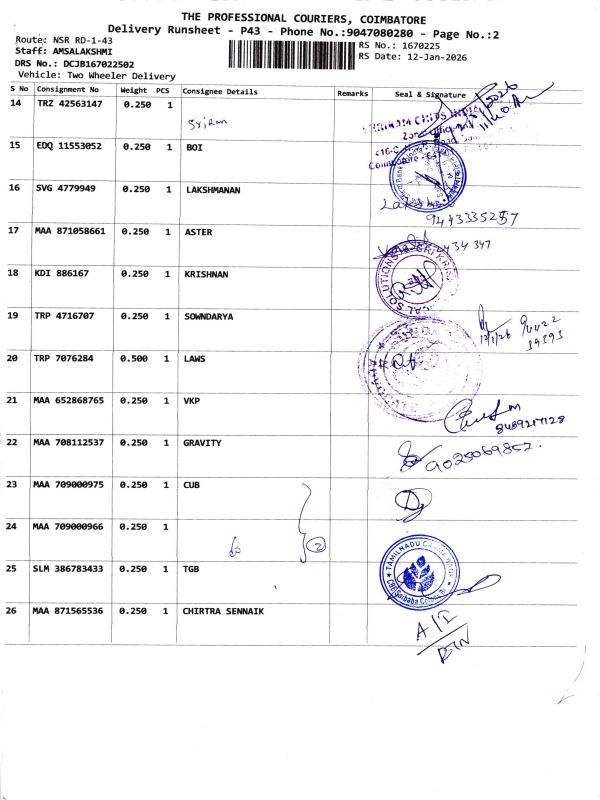 THE PROFESSIONAL COURIERS, COIMBATORE
Delivery Runsheet - P43 - Phone No.:9047080280 - Page No.:2
Route: NSR RD-1-43
RS No.: 1670225
Staff: AMSALAKSHMI
RS Date: 12-Jan-2026
DRS No.: DCJB167022502
Vehicle: Two Wheeler Delivery
S No Consignment No Weight PCS Consignee Details Remarks Seal & Signature
14 TRZ 42563147 0.250 1
15 EDQ 11553052 0.250 1 BOI
16 SVG 4779949 0.250 1 LAKSHMANAN
9443335257
17 MAA 871058661 0.250 1 ASTER
18 KDI 886167 0.250 1 KRISHNAN
19 TRP 4716707 0.250 1 SOWNDARYA
12/1/26
20 TRP 7076284 0.500 1 LAWS
21 MAA 652868765 0.250 1 VKP
22 MAA 708112537 0.250 1 GRAVITY
23 MAA 709000975 0.250 1 CUB
24 MAA 709000966 0.250 1
2
25 SLM 386783433 0.250 1 TGB
26 MAA 871565536 0.250 1 CHIRTRA SENNAIK